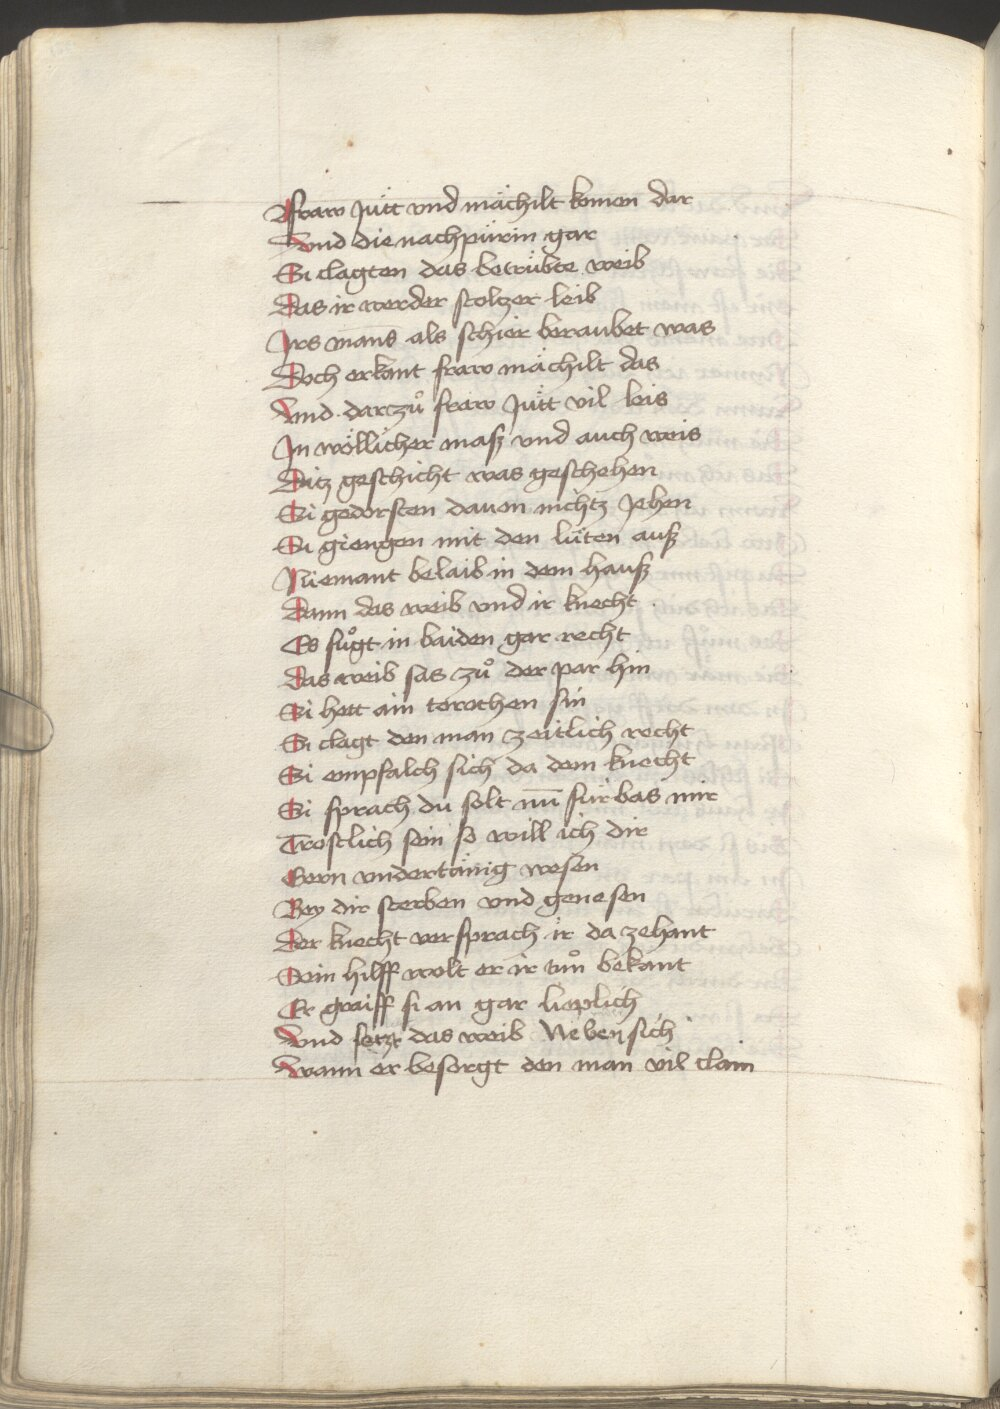 Fraw Jütt vnd mächilt komen dar
Vnd die nachpürin gar
Si clagten das betrübte weib
Das ir werder stoltzer leib
Irs mans als schier beraubet was
Doch erkant fraw mächilt das
Vnd darzuͦ fraw Jütt vil leis
In wöllicher masz vnd auch weis
Ditz geschicht was geschehen
Si gedorsten dauon nichtz Jehen
Si giengen mit den lüten ausz
Niemant belaib in dem hausz
Dann das weib vnd ir knecht
Es fuͦgt in baiden gar recht
Das weib sas zuͦ der par hin
Si hett ain torochen sin
Si clagt den man zeitlich recht
Si empfalch sich da dem knecht
Si sprach du solt nu̅ fürbas mir
Trostlich sein so will ich dir
Gern vndertänig wesen
Bey dir sterben vnd genesen
Der knecht versprach ir da zehant
Sein hilff wolt er ir tuͦn bekant
Er graiff si an gar lieplich
Vnd setzt das weib Neben sich
Wann er besorgt den man vil clain